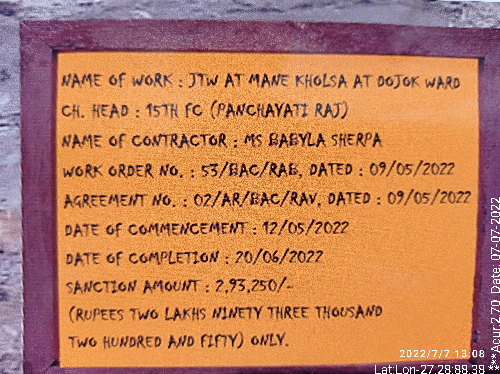 NAME OF WORK : JTW AT MANE KHOLSA AT DOJOK WARD
CH. HEAD : 15TH FC (PANCHAYATI RAJ)
NAME OF CONTRACTOR : MS BABYLA SHERPA
WORK ORDER NO. : 53/BAC/RAB, DATED : 09/05/2022
AGREEMENT NO. : 02/AR/BAC/RAV, DATED : 09/05/2022
DATE OF COMMENCEMENT : 12/05/2022
DATE OF COMPLETION : 20/06/2022
SANCTION AMOUNT : 2,93,250/-
(RUPEES TWO LAKHS NINETY THREE THOUSAND
TWO HUNDRED AND FIFTY) ONLY.
2022/7/7 13:08
Lat:Lon-27.29:88.38
***Acur:2.70 Date: 07-07-2022